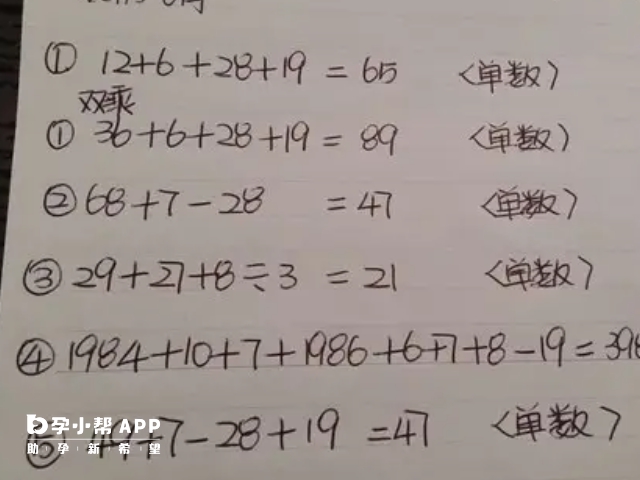 ① 12+6+28+19 = 65 〈单数〉
双乘
① 36+6+28+19 = 89 〈单数〉
② 68+7-28 = 47 〈单数〉
③ 29+27+8÷3 = 21 〈单数〉
④ 1984+10+7+1986+6+7+8-19=398
⑤ 49+7-28+19 =47 〈单数〉
孕小帮APP
助·孕·新·希·望